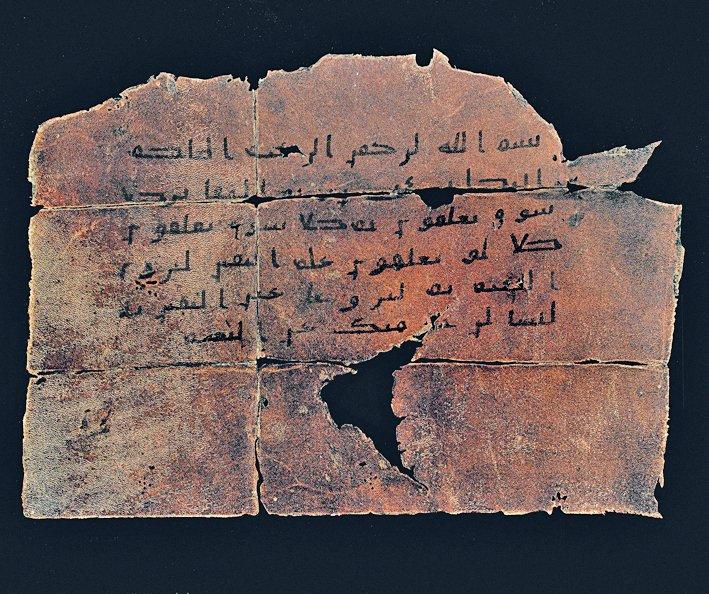 بسم الله لرحمن الرحيم الهكم
التكاثر حتى زرتم المقابر كلا
سوف تعلمون ثم كلا سوف تعلمون
كلا لو تعلمون علم اليقين لترون
الجحيم ثم لترونها عين اليقين ثم
لتسالن يومئذ عن النعيم